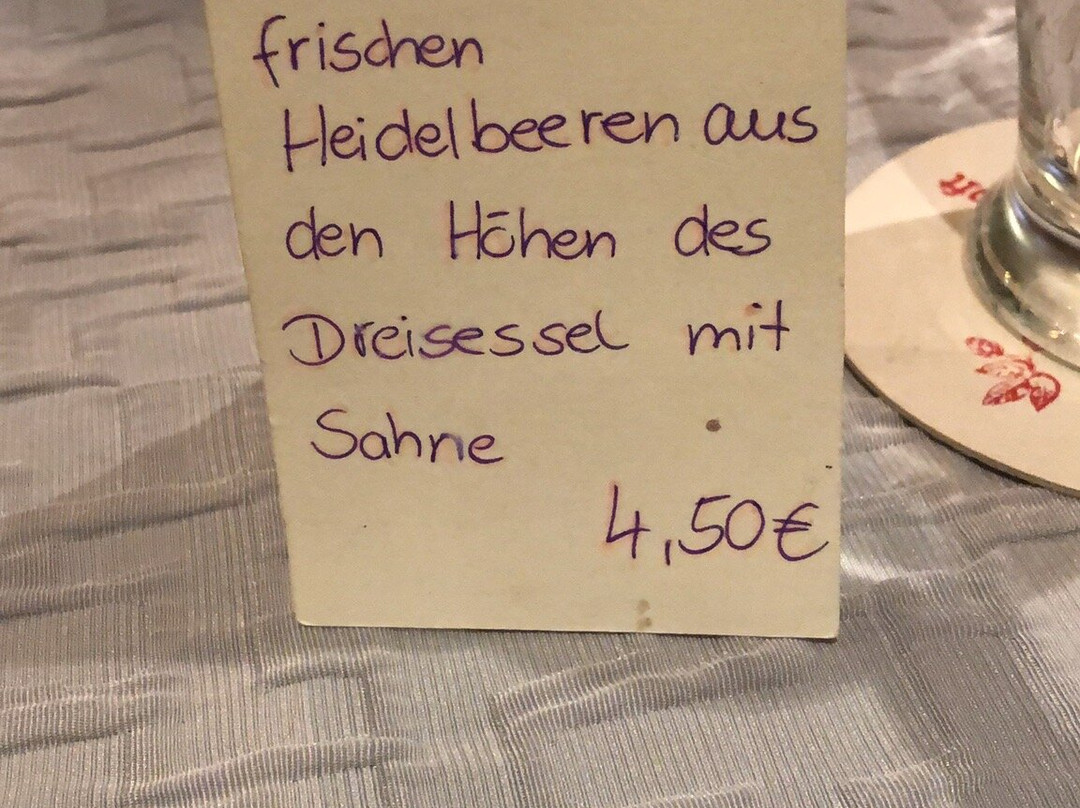 frischen
Heidelbeeren aus
den Höhen des
Dreisessel mit
Sahne
4,50€